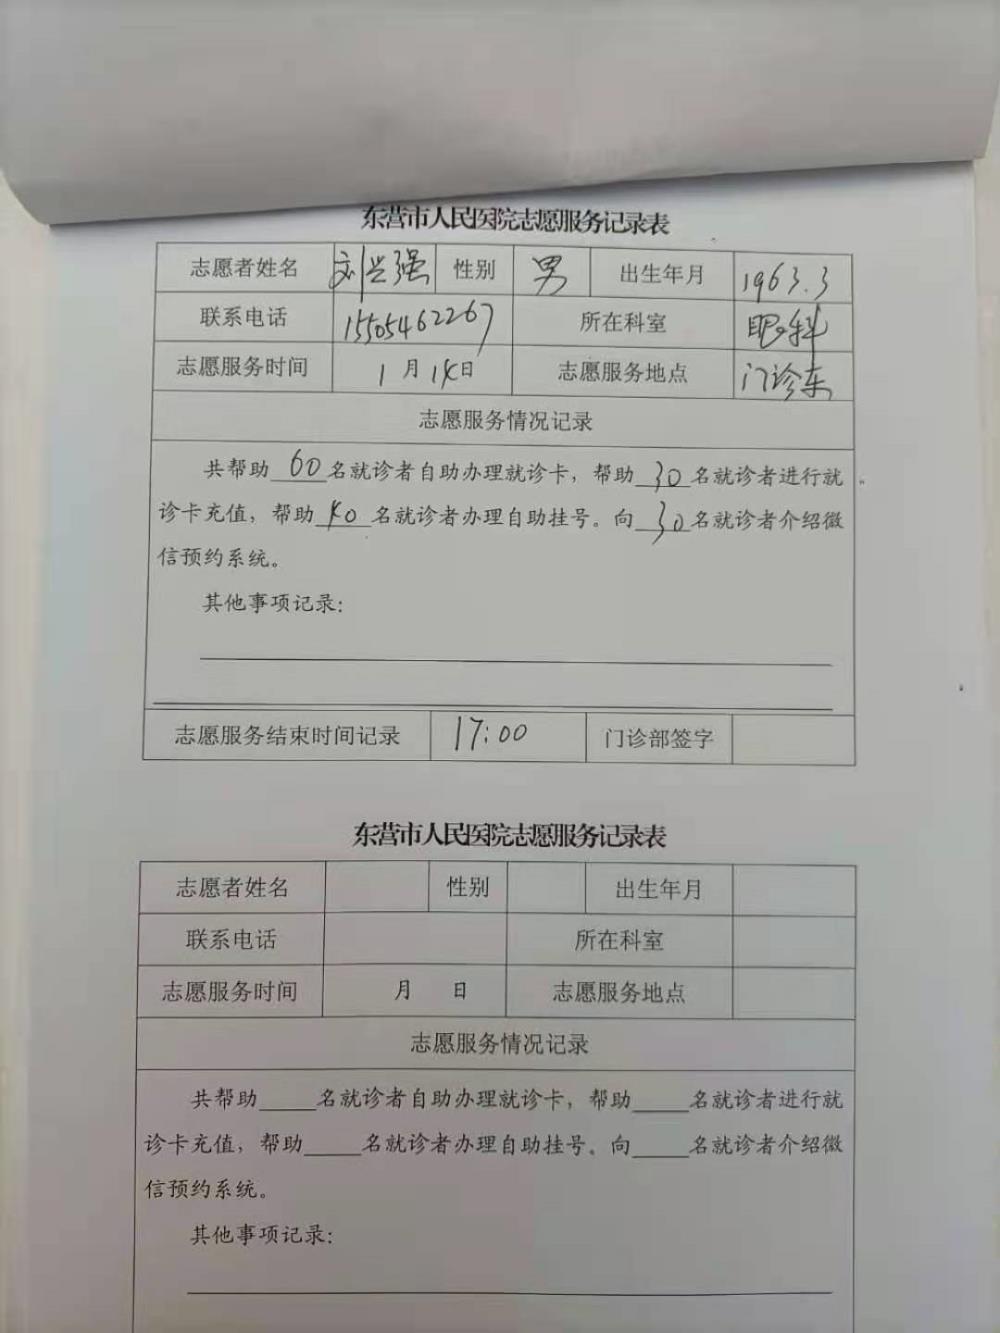 东营市人民医院志愿服务记录表
志愿者姓名 刘兰强 性别 男 出生年月 1963.3
联系电话 15505462267 所在科室 眼科
志愿服务时间 1月14日 志愿服务地点 门诊东
志愿服务情况记录
共帮助60名就诊者自助办理就诊卡，帮助30名就诊者进行就
诊卡充值，帮助40名就诊者办理自助挂号。向30名就诊者介绍微
信预约系统。
其他事项记录：
志愿服务结束时间记录 17:00 门诊部签字
东营市人民医院志愿服务记录表
志愿者姓名 性别 出生年月
联系电话 所在科室
志愿服务时间 月 日 志愿服务地点
志愿服务情况记录
共帮助____名就诊者自助办理就诊卡，帮助____名就诊者进行就
诊卡充值，帮助____名就诊者办理自助挂号。向____名就诊者介绍微
信预约系统。
其他事项记录：